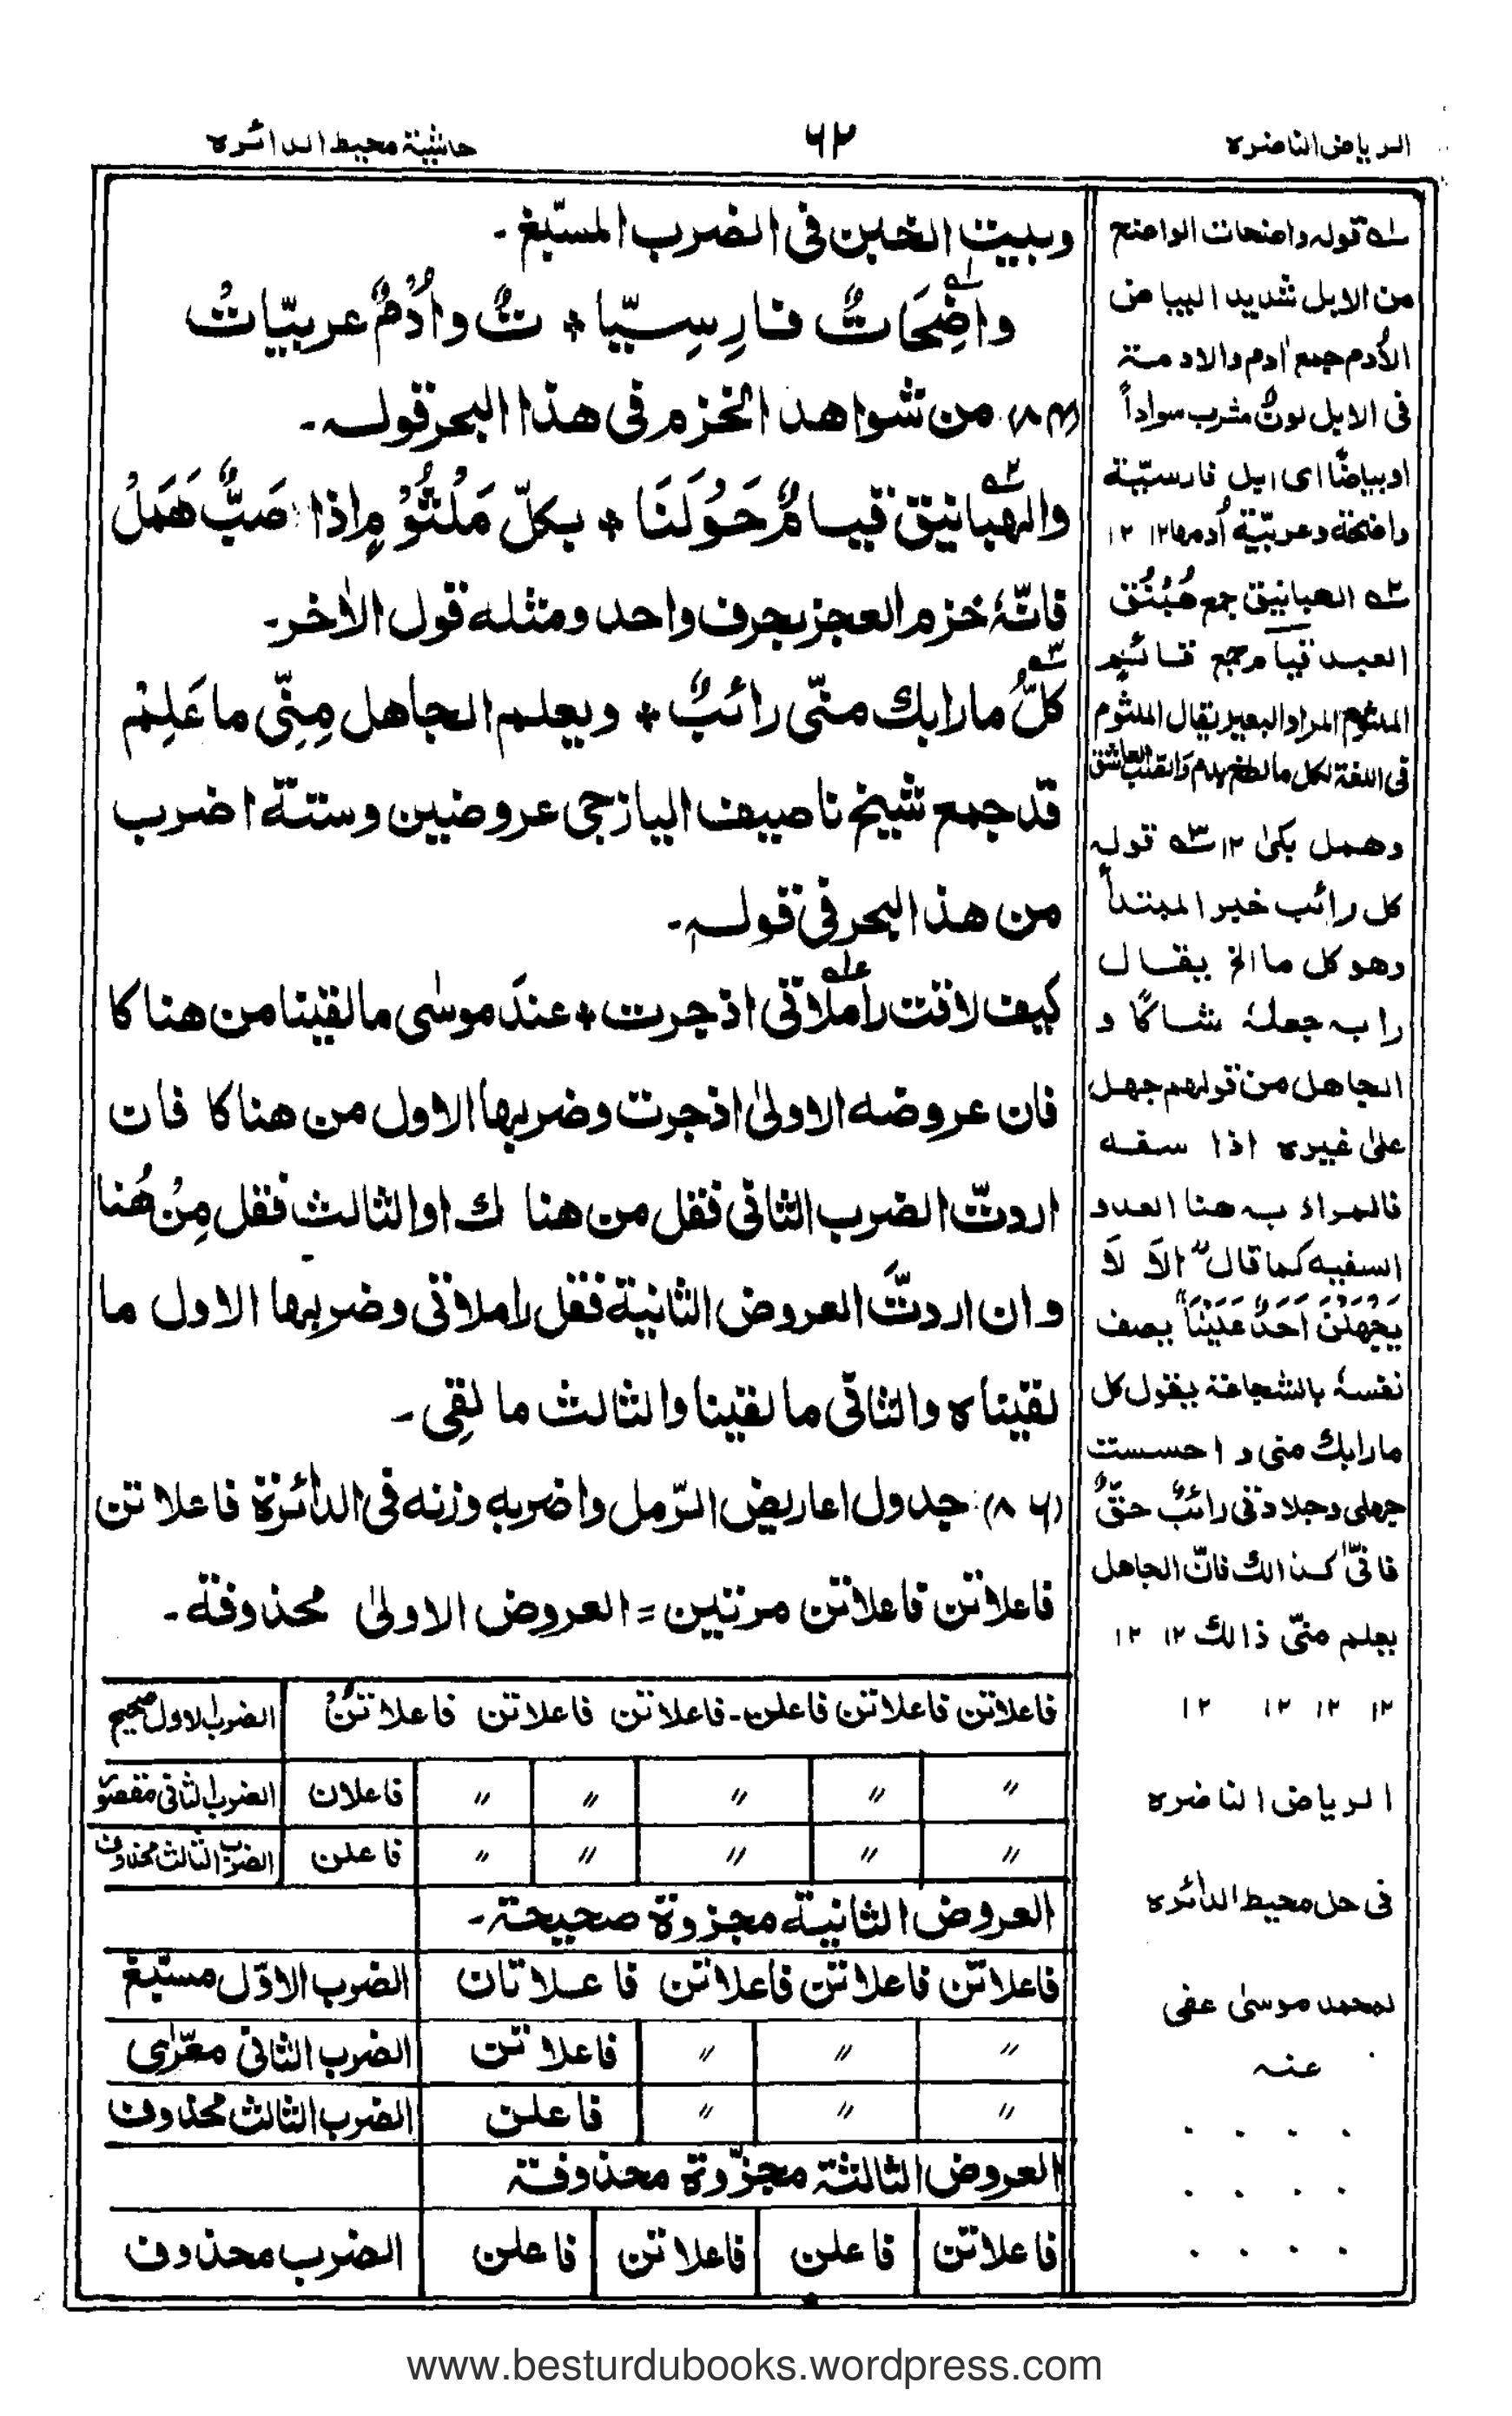 الرياض الناضره
٦٢
حاشية محيط الدائره
وبيت الخبن في الضرب المسبّغ ۔
واضِحَاتٌ فارِسِيّيا + تٌ وأُدْمٌ عربيّاتُ
(٨٤) من شواهد الخزم في هذا البحر قوله ۔
والهبانيق قيامٌ حَوْلَنَا + بكلّ مَلْثُوْمٍ اذا صَبٌّ هَمَلْ
فانّهٗ خزم العجز بحرف واحد ومثله قول الاٰخر۔
كلُّ مارابك منّى رائبٌ + ويعلم الجاهل مِنّى ما عَلِمْ
قد جمع شيخ ناصيف اليازجى عروضين وستة اضرب
من هذا البحر فى قوله ۔
كيف لاقت راملاتى اذ جرت + عندَ موسٰى مالقيْنا من هناكا
فان عروضه الاولىٰ اذ جرت وضربها الاول من هناكا فان
اردتّ الضرب الثانى فقل من هنا ك او الثالث فقل مِنْ هُنا
وان اردتَّ العروض الثانية فقل راملاتى وضربها الاول ما
لقيناه والثانى مالقينا والثالث ما لقِى ۔
(٨٦) جدول اعاريض الرّمل واضربه وزنه فى الدائرة فاعلاتن
فاعلاتن فاعلاتن مرتين = العروض الاولىٰ محذوفة ۔
فاعلاتن فاعلاتن فاعلن ۔ فاعلاتن فاعلاتن فاعلاتنْ الضرب الاول صحيح
〃 〃 〃 〃 〃 فاعلان الضرب الثانى مقصو
〃 〃 〃 〃 〃 فاعلن الضرب الثالث محذوف
العروض الثانية مجزوة صحيحة ۔
فاعلاتن فاعلاتن فاعلاتن فاعلاتان الضرب الاوّل مسبّغ
〃 〃 〃 فاعلاتن الضرب الثانى معرّاى
〃 〃 〃 فاعلن الضرب الثالث محذوف
العروض الثالثة مجزّوة محذوفة
فاعلاتن فاعلن فاعلاتن فاعلن الضرب محذوف
١ه قوله واضحات الواضح
من الابل شديد البياض
الأدم جمع اٰدم والادمة
فى الابل لونٌ مشرب سواداً
اوبياضًا اى ابل فارسيّة
واضحة وعربيّة أدمها ١٢ ١٢
٢ه الهبانيق جمع هُبْنُق
العبد قياٰم جمع قائم
الملثوم المراد البعير يقال الملثوم
فى اللغة لكل مالطخ بدم والصّبّ العاشق
وهمل بكىٰ ١٢ ٣ه قوله
كل رائب خبر المبتدأ
وهو كل ما الخ يقال
رابه جعلهٗ شاكًا و
الجاهل من قولهم جهل
علىٰ غيره اذا سفه
فالمراد به هنا العدو
السفيه كما قال ”الاَ لاَ
يَجْهَلَنْ اَحَدٌ عَلَيْنَا“ يصف
نفسهٗ بالشجاعة يقول كل
مارابك منى و احسست
جهلى وجلادتى رائبٌ حقٌّ
فانىّ كذالك فانّ الجاهل
يعلم منّى ذالك ١٢ ١٢
١٢ ١٢ ١٢ ١٢
الرياض الناضره
فى حل محيط الدائره
لمحمد موسىٰ عفى
عنه
www.besturdubooks.wordpress.com